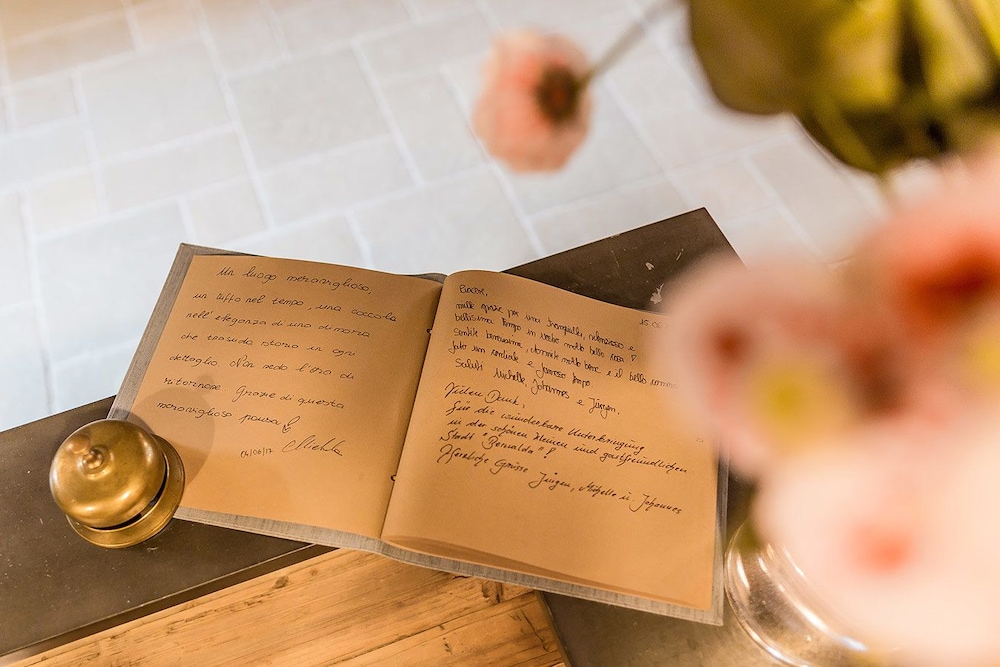 Un luogo meraviglioso,
un tuffo nel tempo, una coccola
nell'eleganza di una dimora
che trasuda storia in ogni
dettaglio. Non vedo l'ora di
ritornare Grazie di questa
meravigliosa pausa!
04/06/17
15.06
mille grazie per una tranquilla, e
bellissima tempo in vostro molto bella casa!
sentite benissimo, dormite molto bene e il bello
fate un cordiale e tempo
Saluti Michelle, Johannes e Jürgen.
Vielen Dank,
für die wunderbare Unterbringung
in der schönen kleinen und gastfreundlichen
Stadt "Bernalda"!
Herzliche Grüsse Jürgen, Michelle u. Johannes